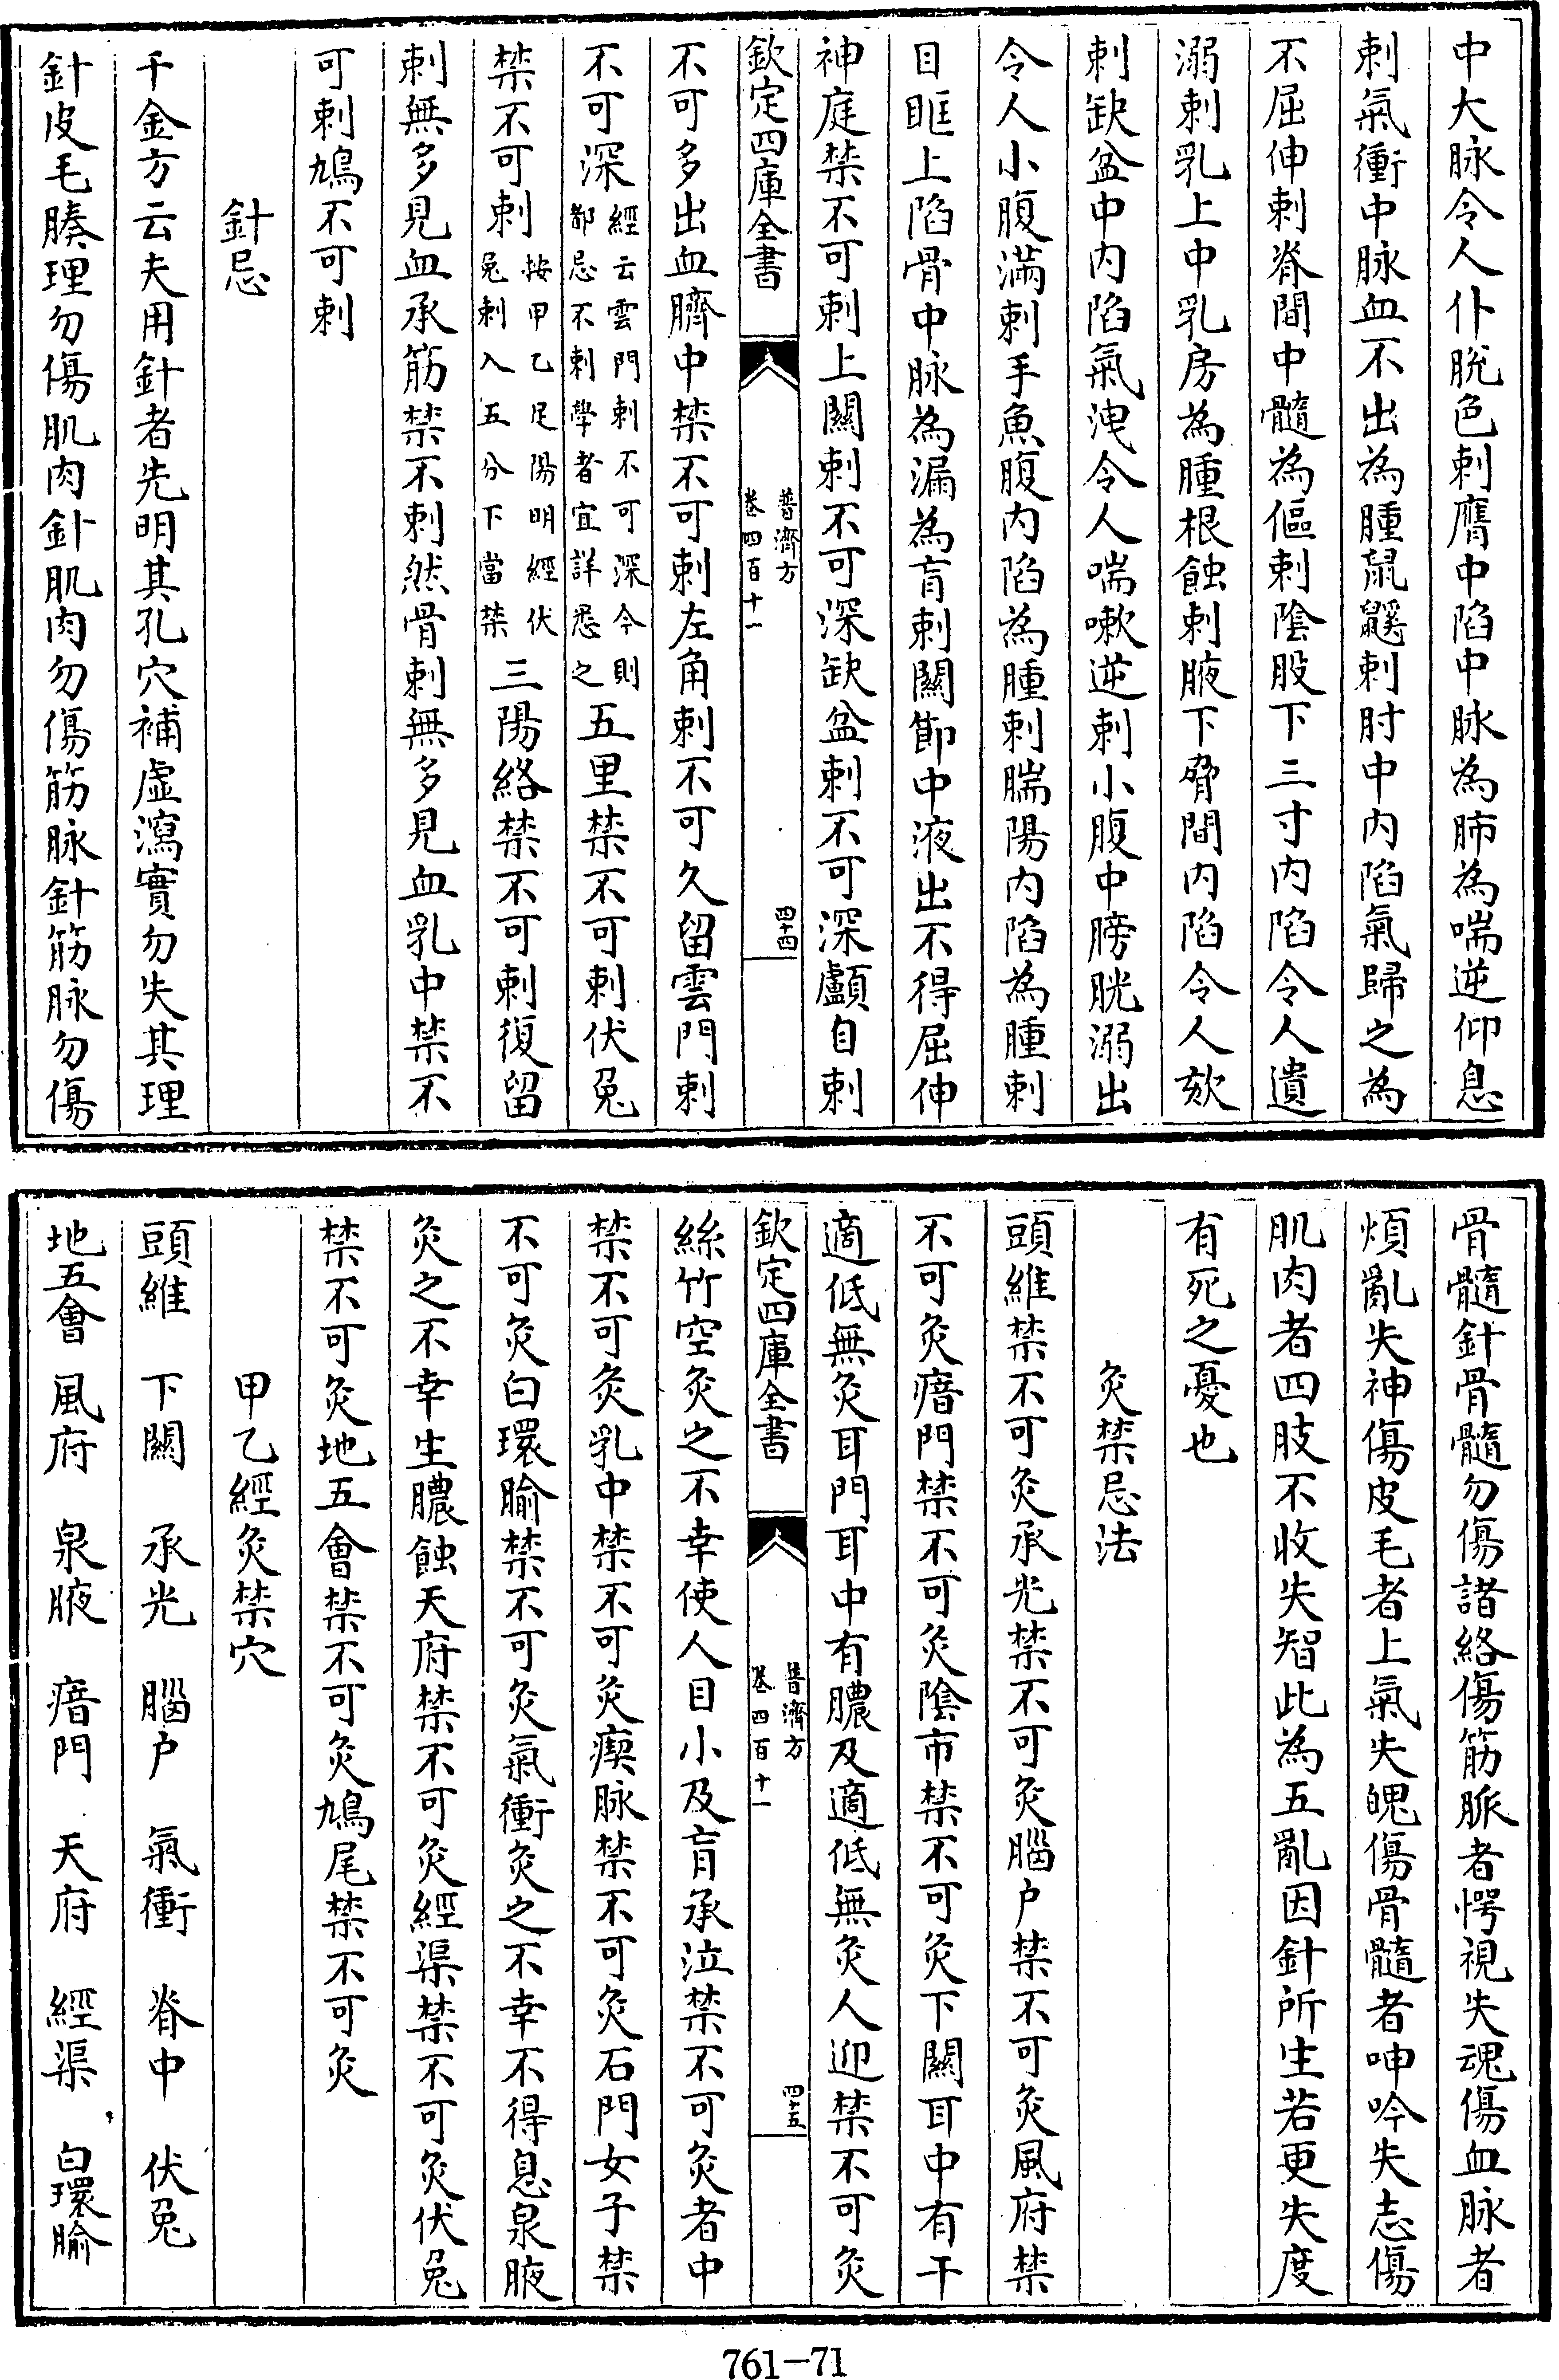 中大脉令人仆脱色刺膺中陷中脉為肺為喘逆仰息
刺氣衝中脉血不出為腫鼠鼷刺肘中内陷氣歸之為
不屈伸刺脊間中髓為傴刺陰股下三寸内陷令人遺
溺刺乳上中乳房為腫根蝕刺腋下脅間内陷令人欬
刺缺盆中内陷氣洩令人喘嗽逆刺小腹中膀胱溺出
令人小腹滿刺手魚腹内陷為腫刺腨陽内陷為腫刺
目眶上陷骨中脉為漏為盲刺關節中液出不得屈伸
神庭禁不可刺上關刺不可深缺盆刺不可深顱自刺
欽定四庫全書 普濟方 卷四百十一 四十四
不可多出血臍中禁不可刺左角刺不可久留雲門刺
不可深經云雲門刺不可深今則都忌不刺學者宜詳悉之五里禁不可刺伏兔
禁不可刺按甲乙足陽明經伏兔刺入五分下當禁三陽絡禁不可刺復留
刺無多見血承筋禁不刺然骨刺無多見血乳中禁不
可刺鳩不可刺
針忌
千金方云夫用針者先明其孔穴補虛瀉實勿失其理
針皮毛腠理勿傷肌肉針肌肉勿傷筋脉針筋脉勿傷
骨髓針骨髓勿傷諸絡傷筋脈者愕視失魂傷血脉者
煩亂失神傷皮毛者上氣失魄傷骨髓者呻吟失志傷
肌肉者四肢不收失智此為五亂因針所生若更失度
有死之憂也
灸禁忌法
頭維禁不可灸承光禁不可灸腦户禁不可灸風府禁
不可灸瘖門禁不可灸陰市禁不可灸下關耳中有干
適低無灸耳門耳中有膿及適低無灸人迎禁不可灸
欽定四庫全書 普濟方 卷四百十一 四十五
絲竹空灸之不幸使人目小及盲承泣禁不可灸者中
禁不可灸乳中禁不可灸瘈脉禁不可灸石門女子禁
不可灸白環腧禁不可灸氣衝灸之不幸不得息泉腋
灸之不幸生膿蝕天府禁不可灸經渠禁不可灸伏兔
禁不可灸地五會禁不可灸鳩尾禁不可灸
甲乙經灸禁穴
頭維 下關 承光 腦户 氣衝 脊中 伏兔
地五會 風府 泉腋 瘖門 天府 經渠 白環腧
761-71